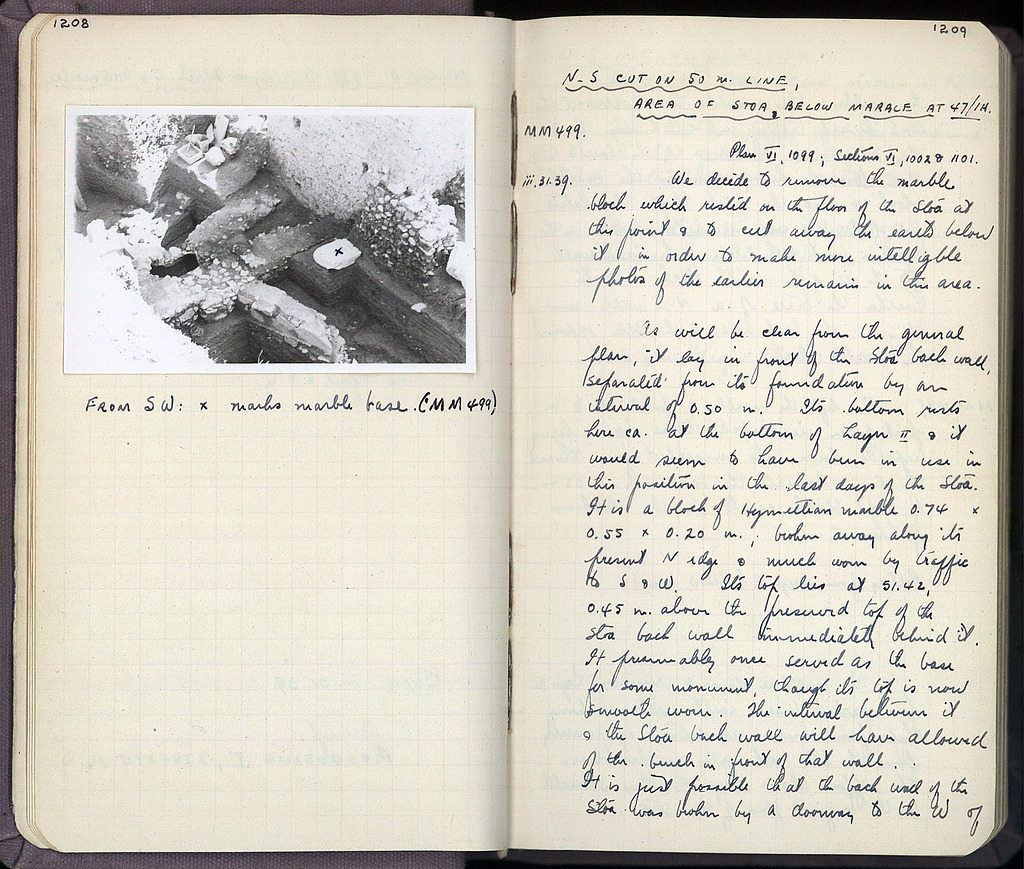 1208
x
FROM SW: x marks marble base. (MM 499)
1209
N-S CUT ON 50 m. LINE,
AREA OF STOA, BELOW MARBLE AT 47/ΙΑ.
MM 499.
Plan VI, 1099; Sections VI, 1002 & 1101.
iii.31.39. We decide to remove the marble
block which rested on the floor of the Stoa at
this point & to cut away the earth below
it in order to make more intelligible
photos of the earlier remains in this area.
As will be clear from the general
plan, it lay in front of the Stoa back wall,
separated from its foundation by an
interval of 0.50 m. Its bottom rests
here ca. at the bottom of Layer II & it
would seem to have been in use in
this position in the last days of the Stoa.
It is a block of Hymettian marble 0.74 x
0.55 x 0.20 m., broken away along its
present N edge & much worn by traffic
to S & W. Its top lies at 51.42,
0.45 m. above the preserved top of the
Stoa back wall immediately behind it.
It presumably once served as the base
for some monument, though its top is now
smooth worn. The interval between it
& the Stoa back wall will have allowed
of the bench in front of that wall.
It is just possible that the back wall of the
Stoa was broken by a doorway to the W of